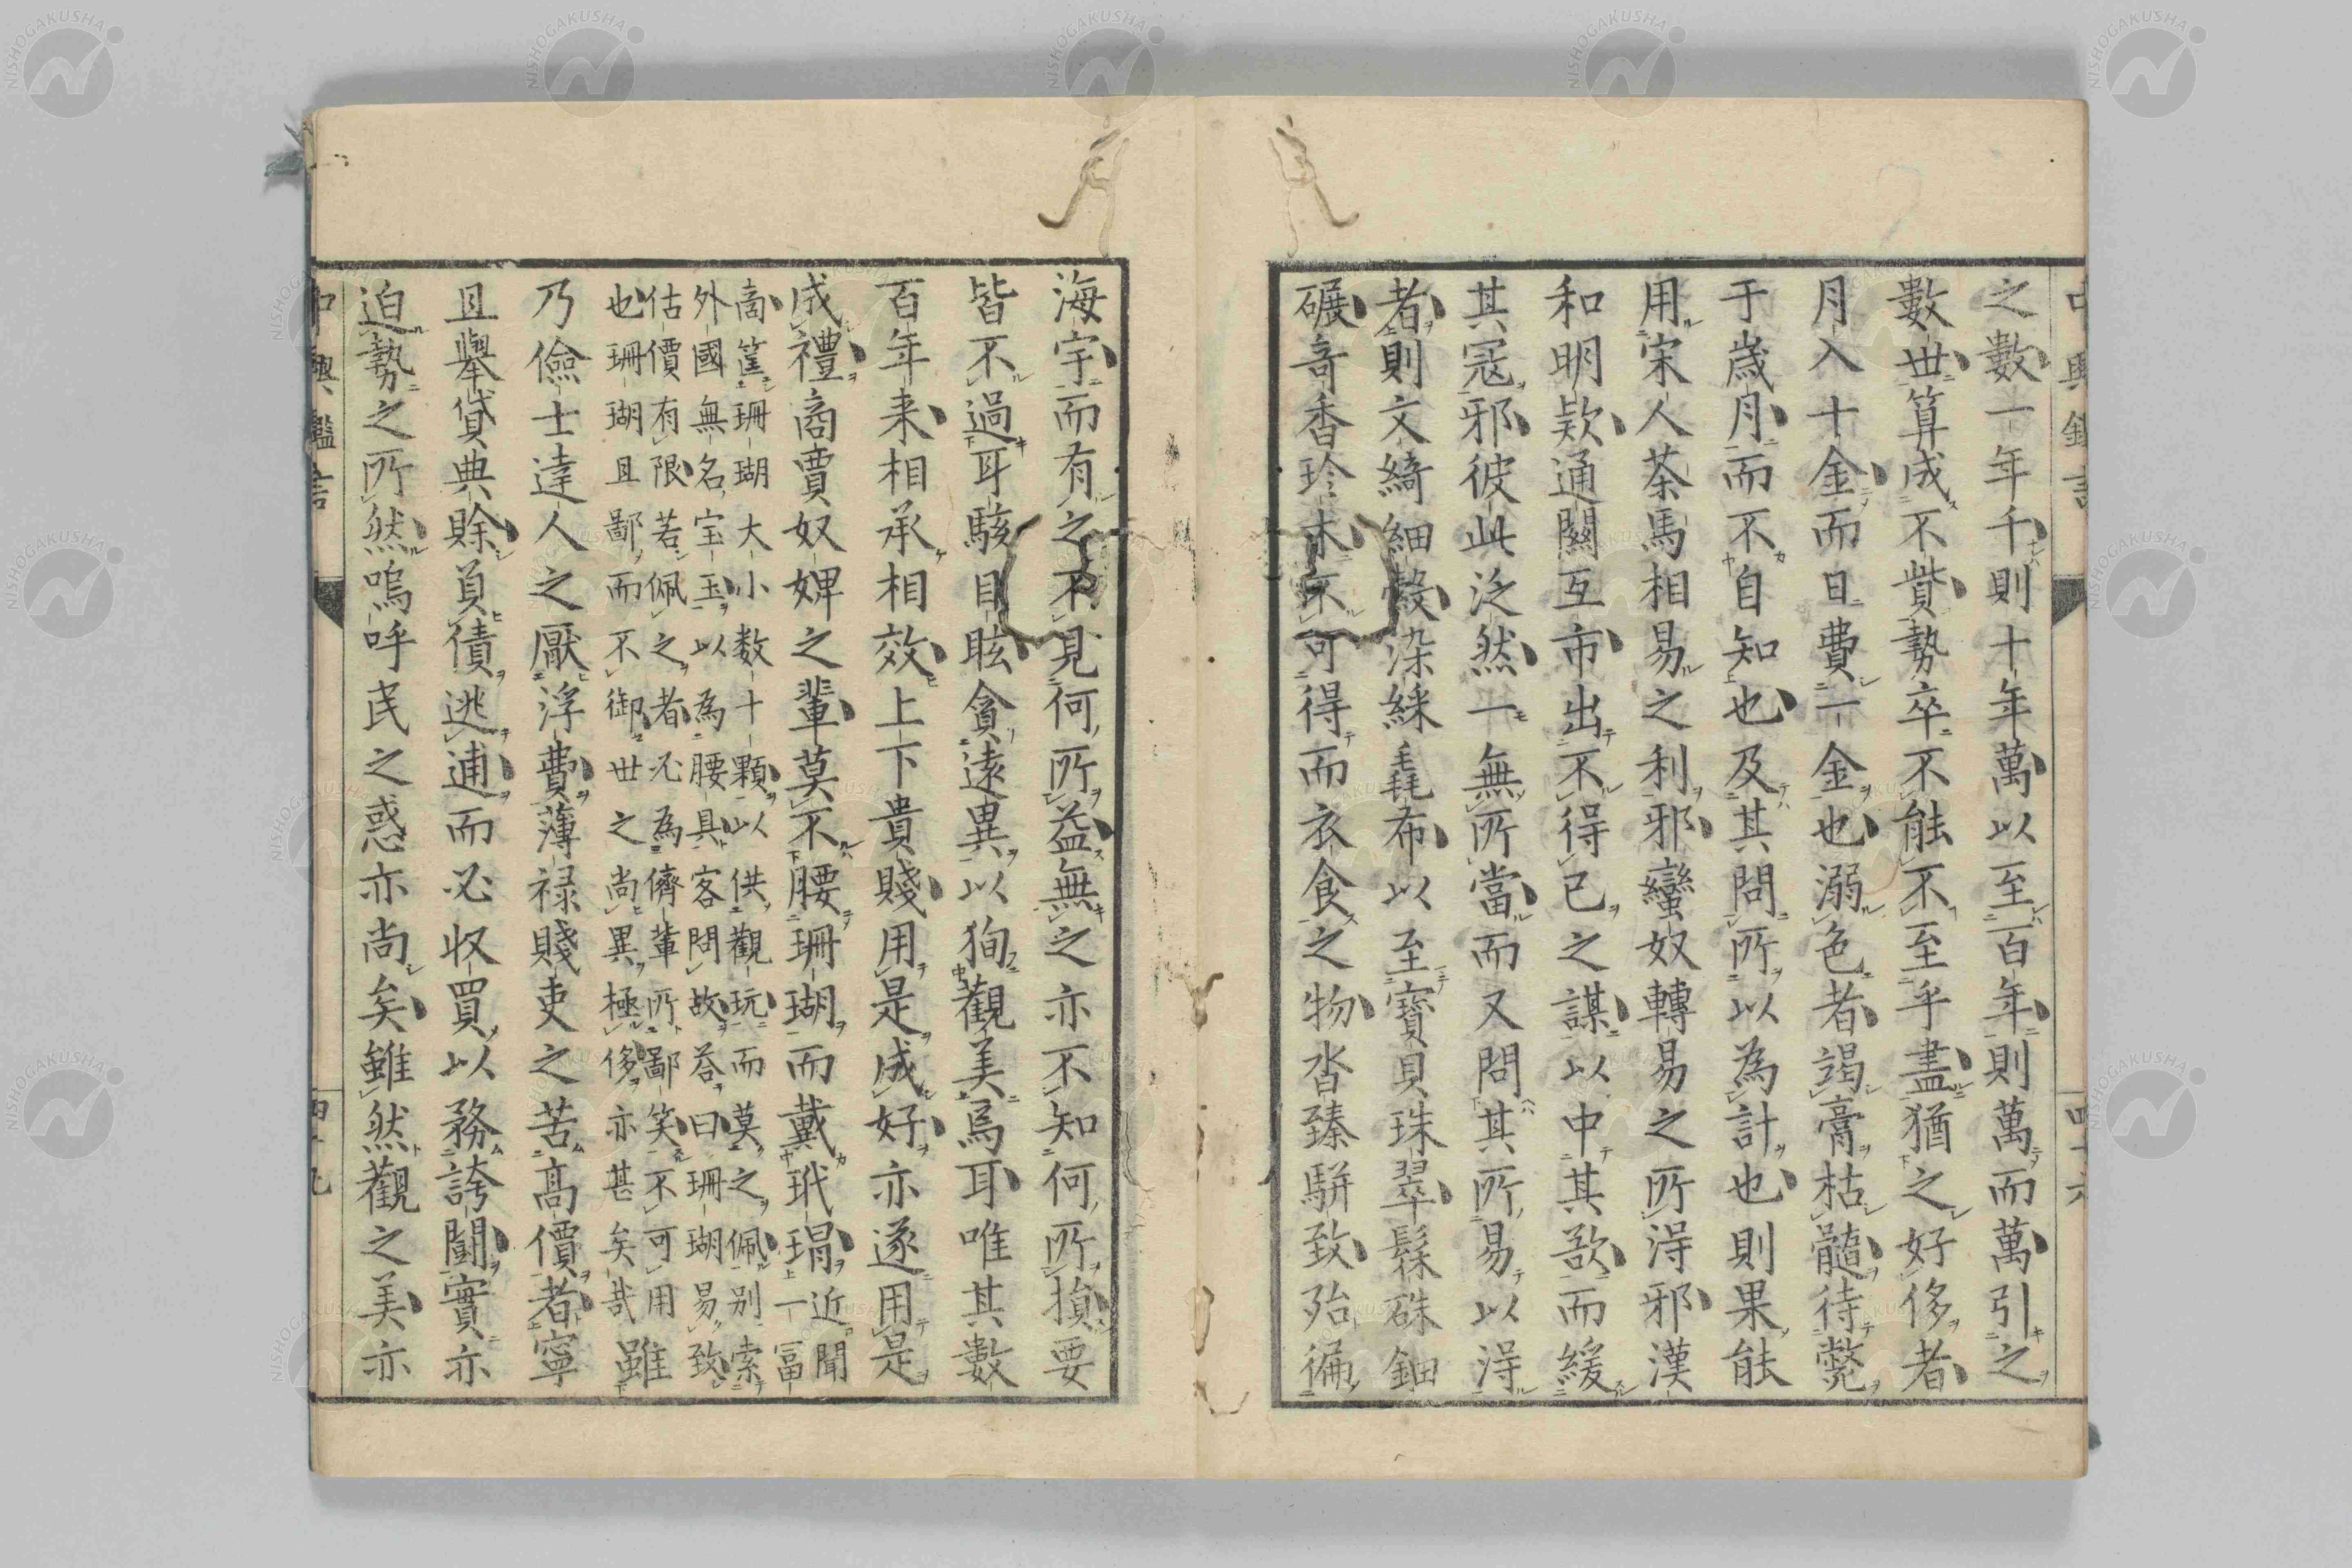 之數一年千則十年萬以至百年則萬而萬引之
數世算成不貲勢卒不能不至乎盡猶之好侈者
月入十金而日費一金也溺色者竭膏枯髓待斃
于歳月而不自知也及其問所以為計也則果能
用宋人茶馬相易之利邪蠻奴轉易之所淂邪漢
和明欵通關互市出不得已之謀以中其歆而緩
其寇邪彼此泛然一無所當而又問其所易以淂
者則文綺細縠染綵毳布以至寳貝珠翠髹硃鈿
碾奇香珍木不可得而衣食之物沓臻駢致殆徧
海宇而有之不見何所益無之亦不知何所損要
皆不過耳駭目眩貪遠異以狥觀美焉耳唯其數
百年来相承相效上下貴賤用是成好亦遂用是
成禮商賈奴婢之輩莫不腰珊瑚而戴玳瑁近聞一冨
商筐珊瑚大小数十顆以供觀玩而莫之佩别索
外國無名宝玉以為腰具客問故荅曰珊瑚易致
估價有限若佩之者必為儕輩所鄙笑不可用
也珊瑚且鄙而不御世之尚異極侈亦甚矣哉雖
乃儉士達人之厭浮費薄禄賤吏之苦髙價者寧
且擧貸典賒負債逃逋而必収買以務誇鬪實亦
迫勢之所然嗚呼民之惑亦尚矣雖然觀之美亦